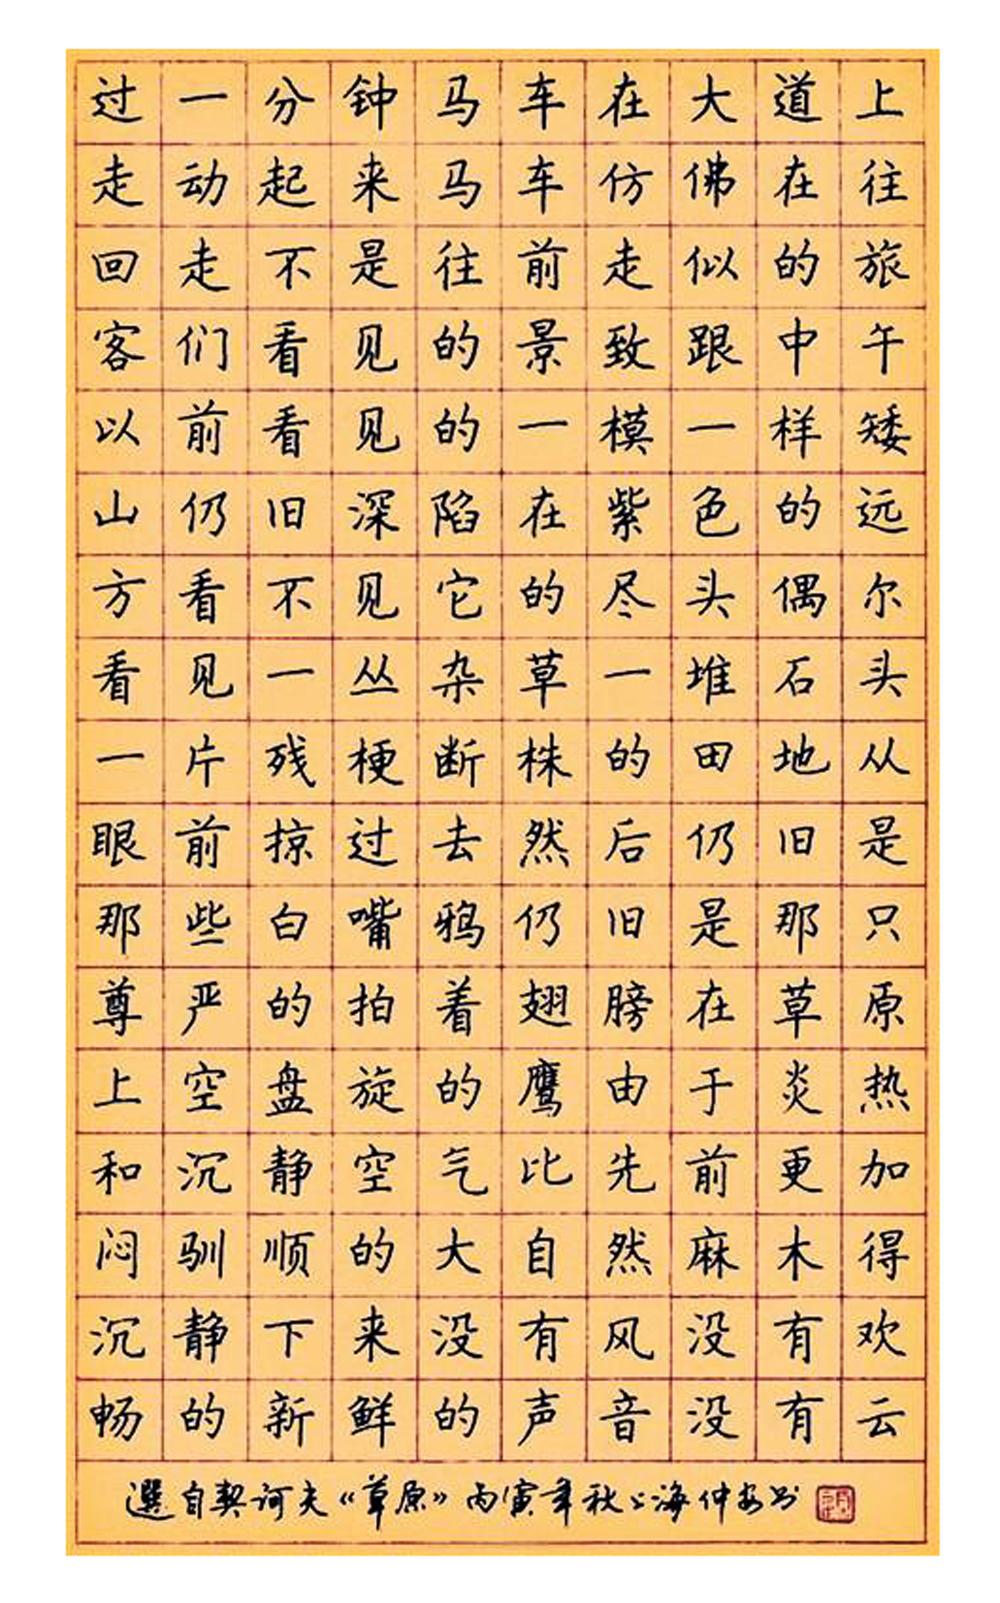 过一分钟马车在大道上
走动起来马车仿佛在往
回走不是往前走似的旅
客们看见的景致跟中午
以前看见的一模一样矮
山仍旧深陷在紫色的远
方看不见它的尽头偶尔
看见一丛杂草一堆石头
一片残梗断株的田地从
眼前掠过去然后仍旧是
那些白嘴鸦仍旧是那只
尊严的拍着翅膀在草原
上空盘旋的鹰由于炎热
和沉静空气比先前更加
闷驯顺的大自然麻木得
沉静下来没有风没有欢
畅的新鲜的声音没有云
選自契诃夫《草原》丙寅年秋上海仲安